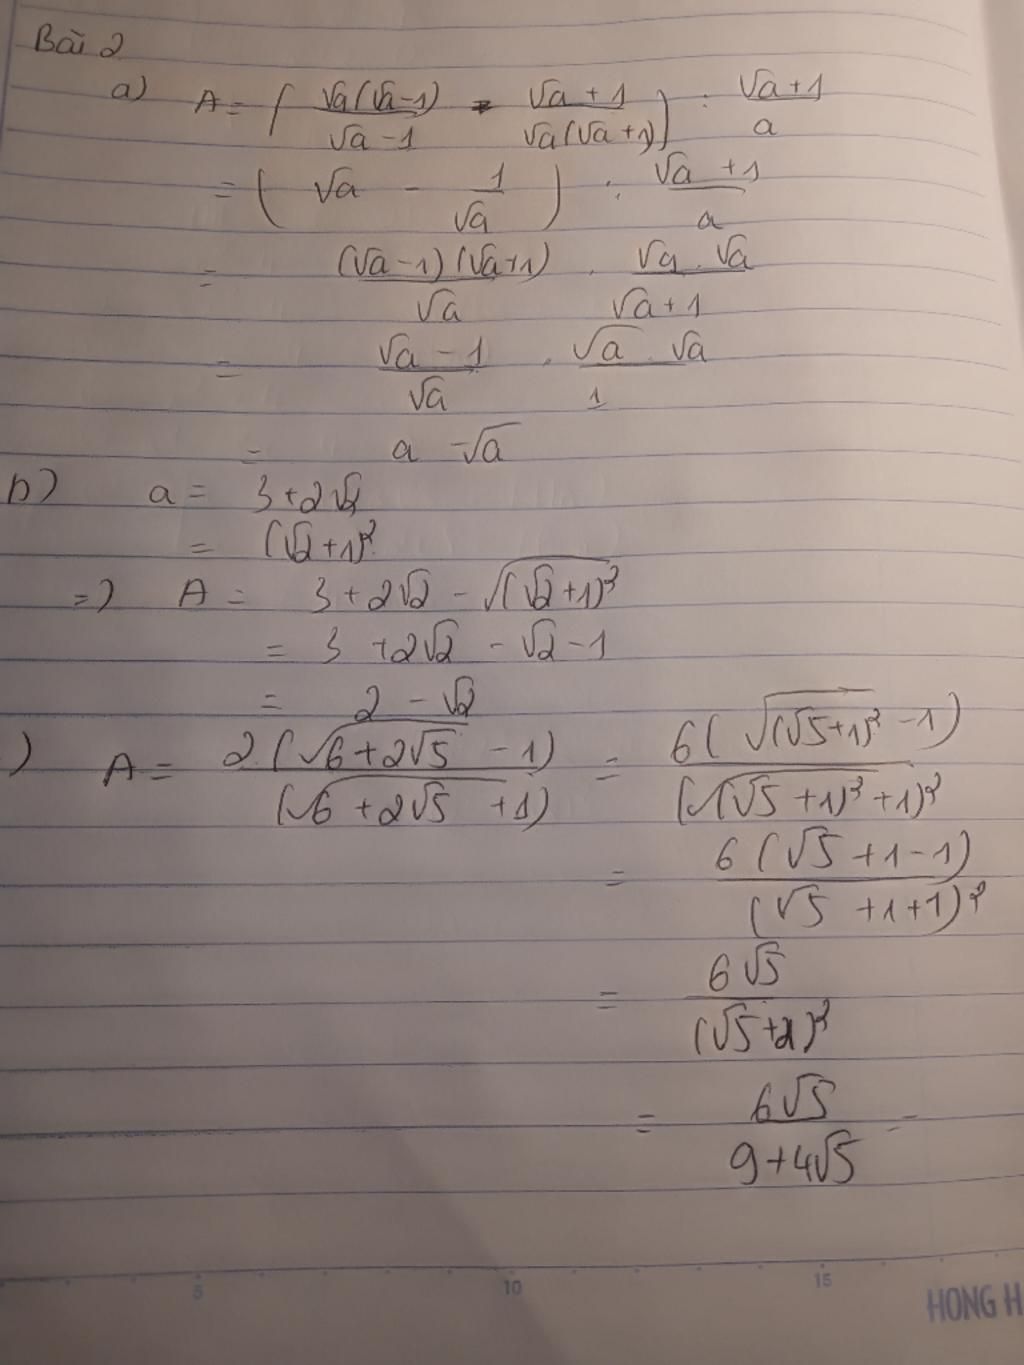 Bài 2
a) A = ( √a(√a-1)/√a-1 - √a+1/√a(√a+1) ) : √a+1/a
= ( √a - 1/√a ) : √a+1/a
= (√a-1)(√a+1)/√a . √a.√a/√a+1
= √a-1/√a . √a.√a/1
= a-√a
b) a = 3+2√2
= (√2+1)²
=> A = 3+2√2 - √(√2+1)²
= 3+2√2-√2-1
= 2-√2
) A = 2(√6+2√5 -1)/(√6+2√5 +1) = 6(√(√5+1)² -1)/(√(√5+1)² +1)²
= 6(√5+1-1)/(√5+1+1)²
= 6√5/(√5+2)²
= 6√5/9+4√5 -
5 10 15
HONG H